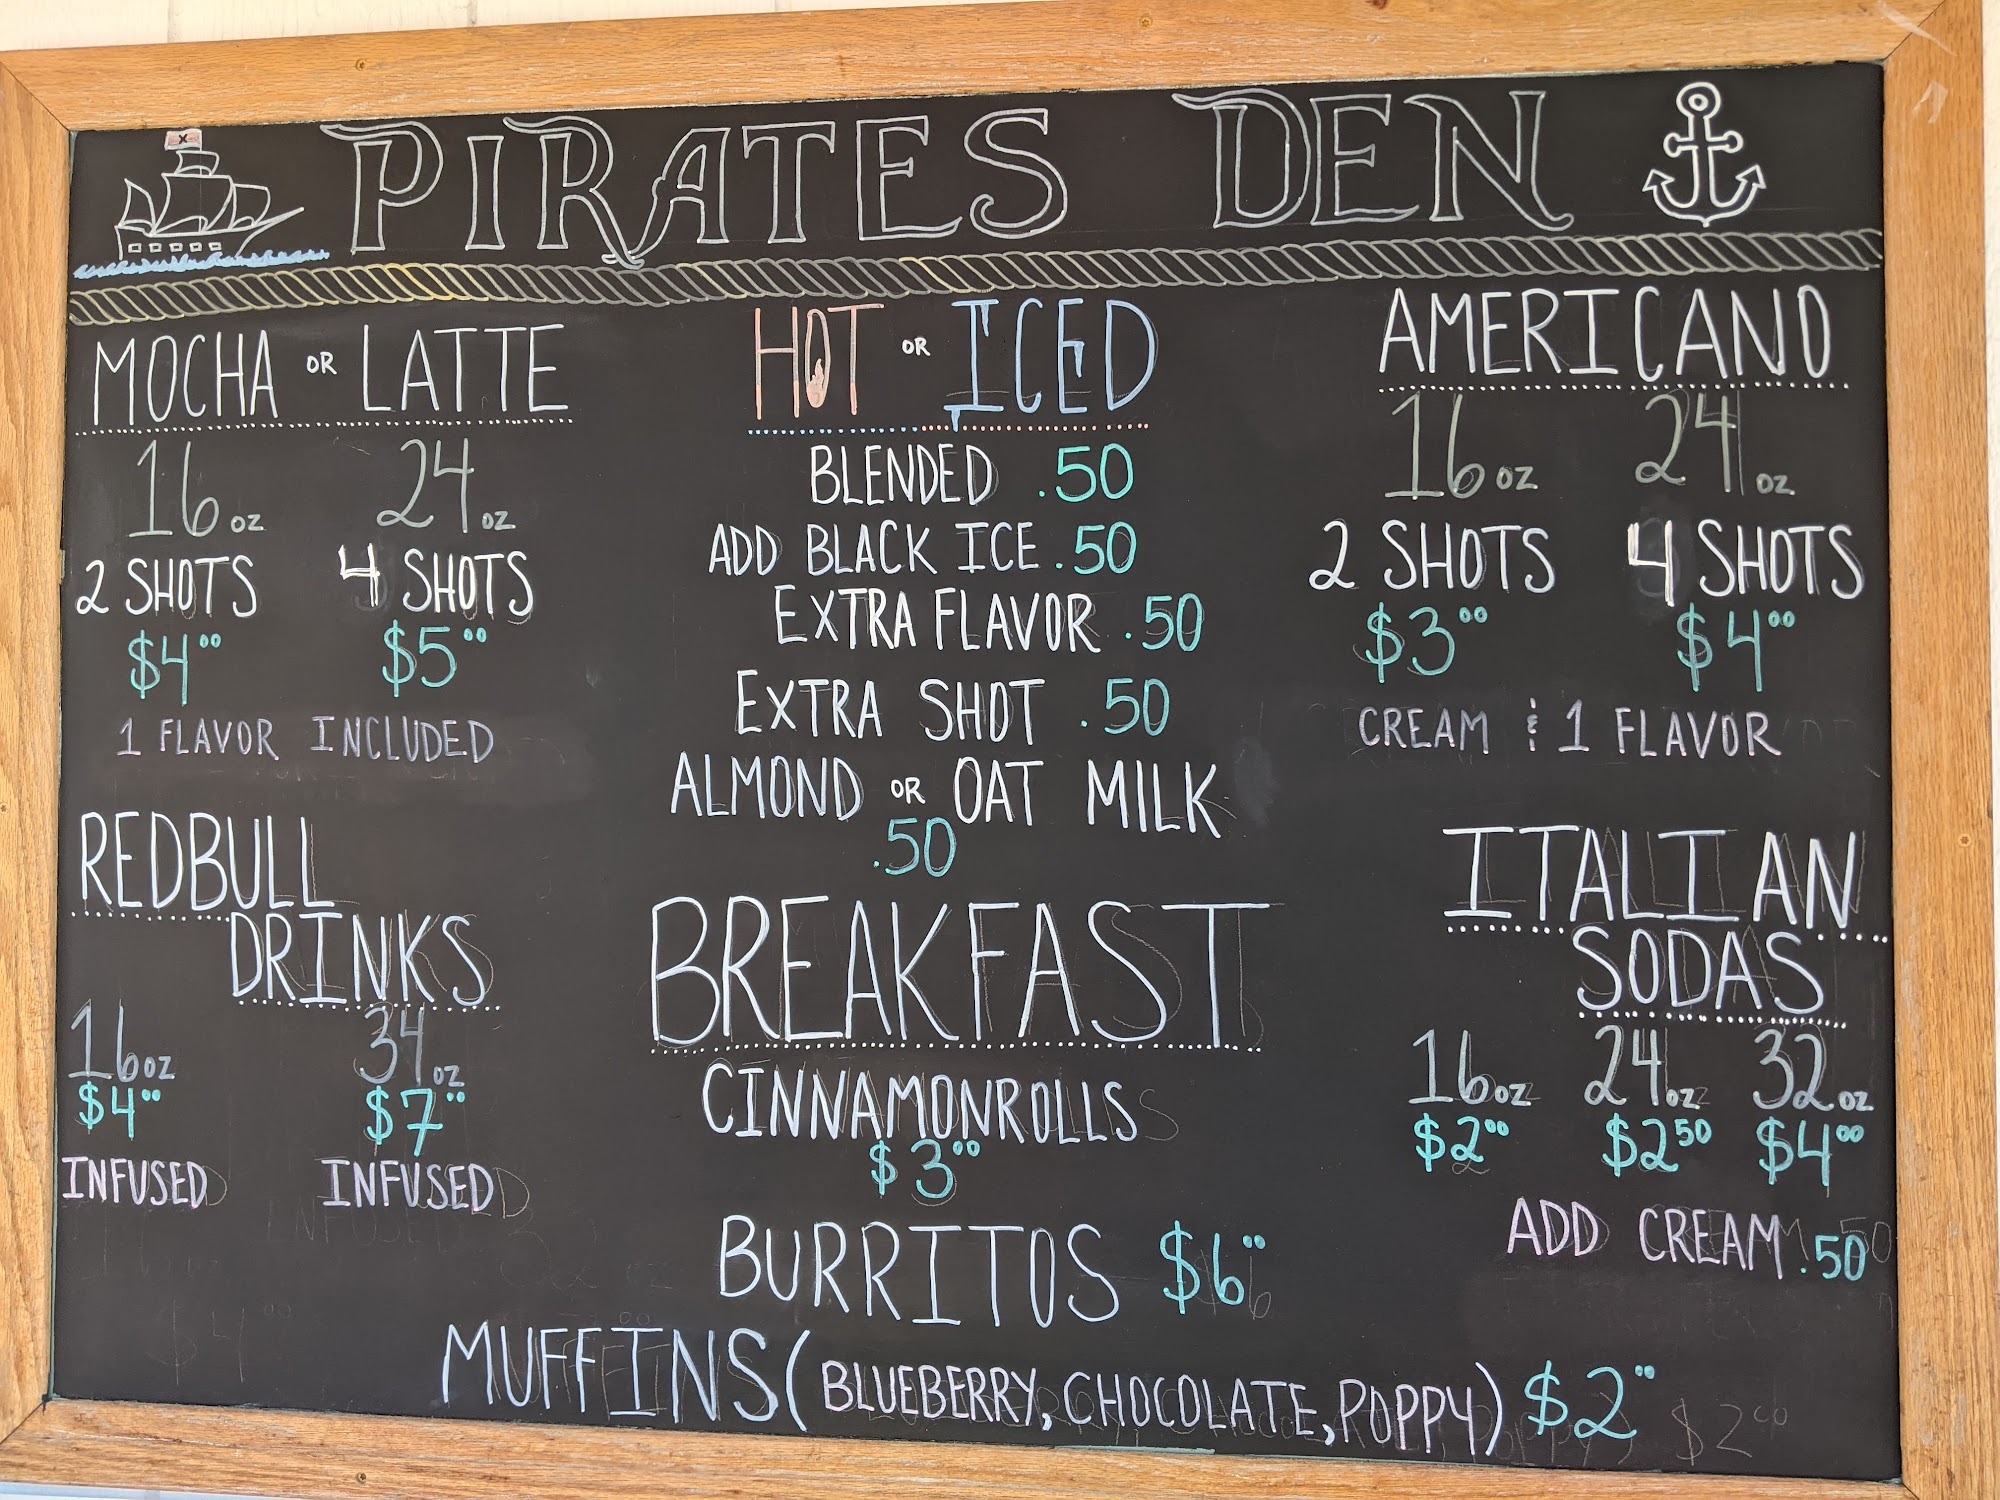 PIRATES DEN
MOCHA OR LATTE
16 oz 24 oz
2 SHOTS 4 SHOTS
$4.00 $5.00
1 FLAVOR INCLUDED
REDBULL
DRINKS
16 oz 34 oz
$4.00 $7.00
INFUSED INFUSED
HOT OR ICED
BLENDED .50
ADD BLACK ICE .50
EXTRA FLAVOR .50
EXTRA SHOT .50
ALMOND OR OAT MILK
.50
BREAKFAST
CINNAMONROLLS
$3.00
BURRITOS $6.00
MUFFINS (BLUEBERRY, CHOCOLATE, POPPY) $2.00
AMERICANO
16 oz 24 oz
2 SHOTS 4 SHOTS
$3.00 $4.00
CREAM & 1 FLAVOR
ITALIAN
SODAS
16 oz 24 oz 32 oz
$2.00 $2.50 $4.00
ADD CREAM .50